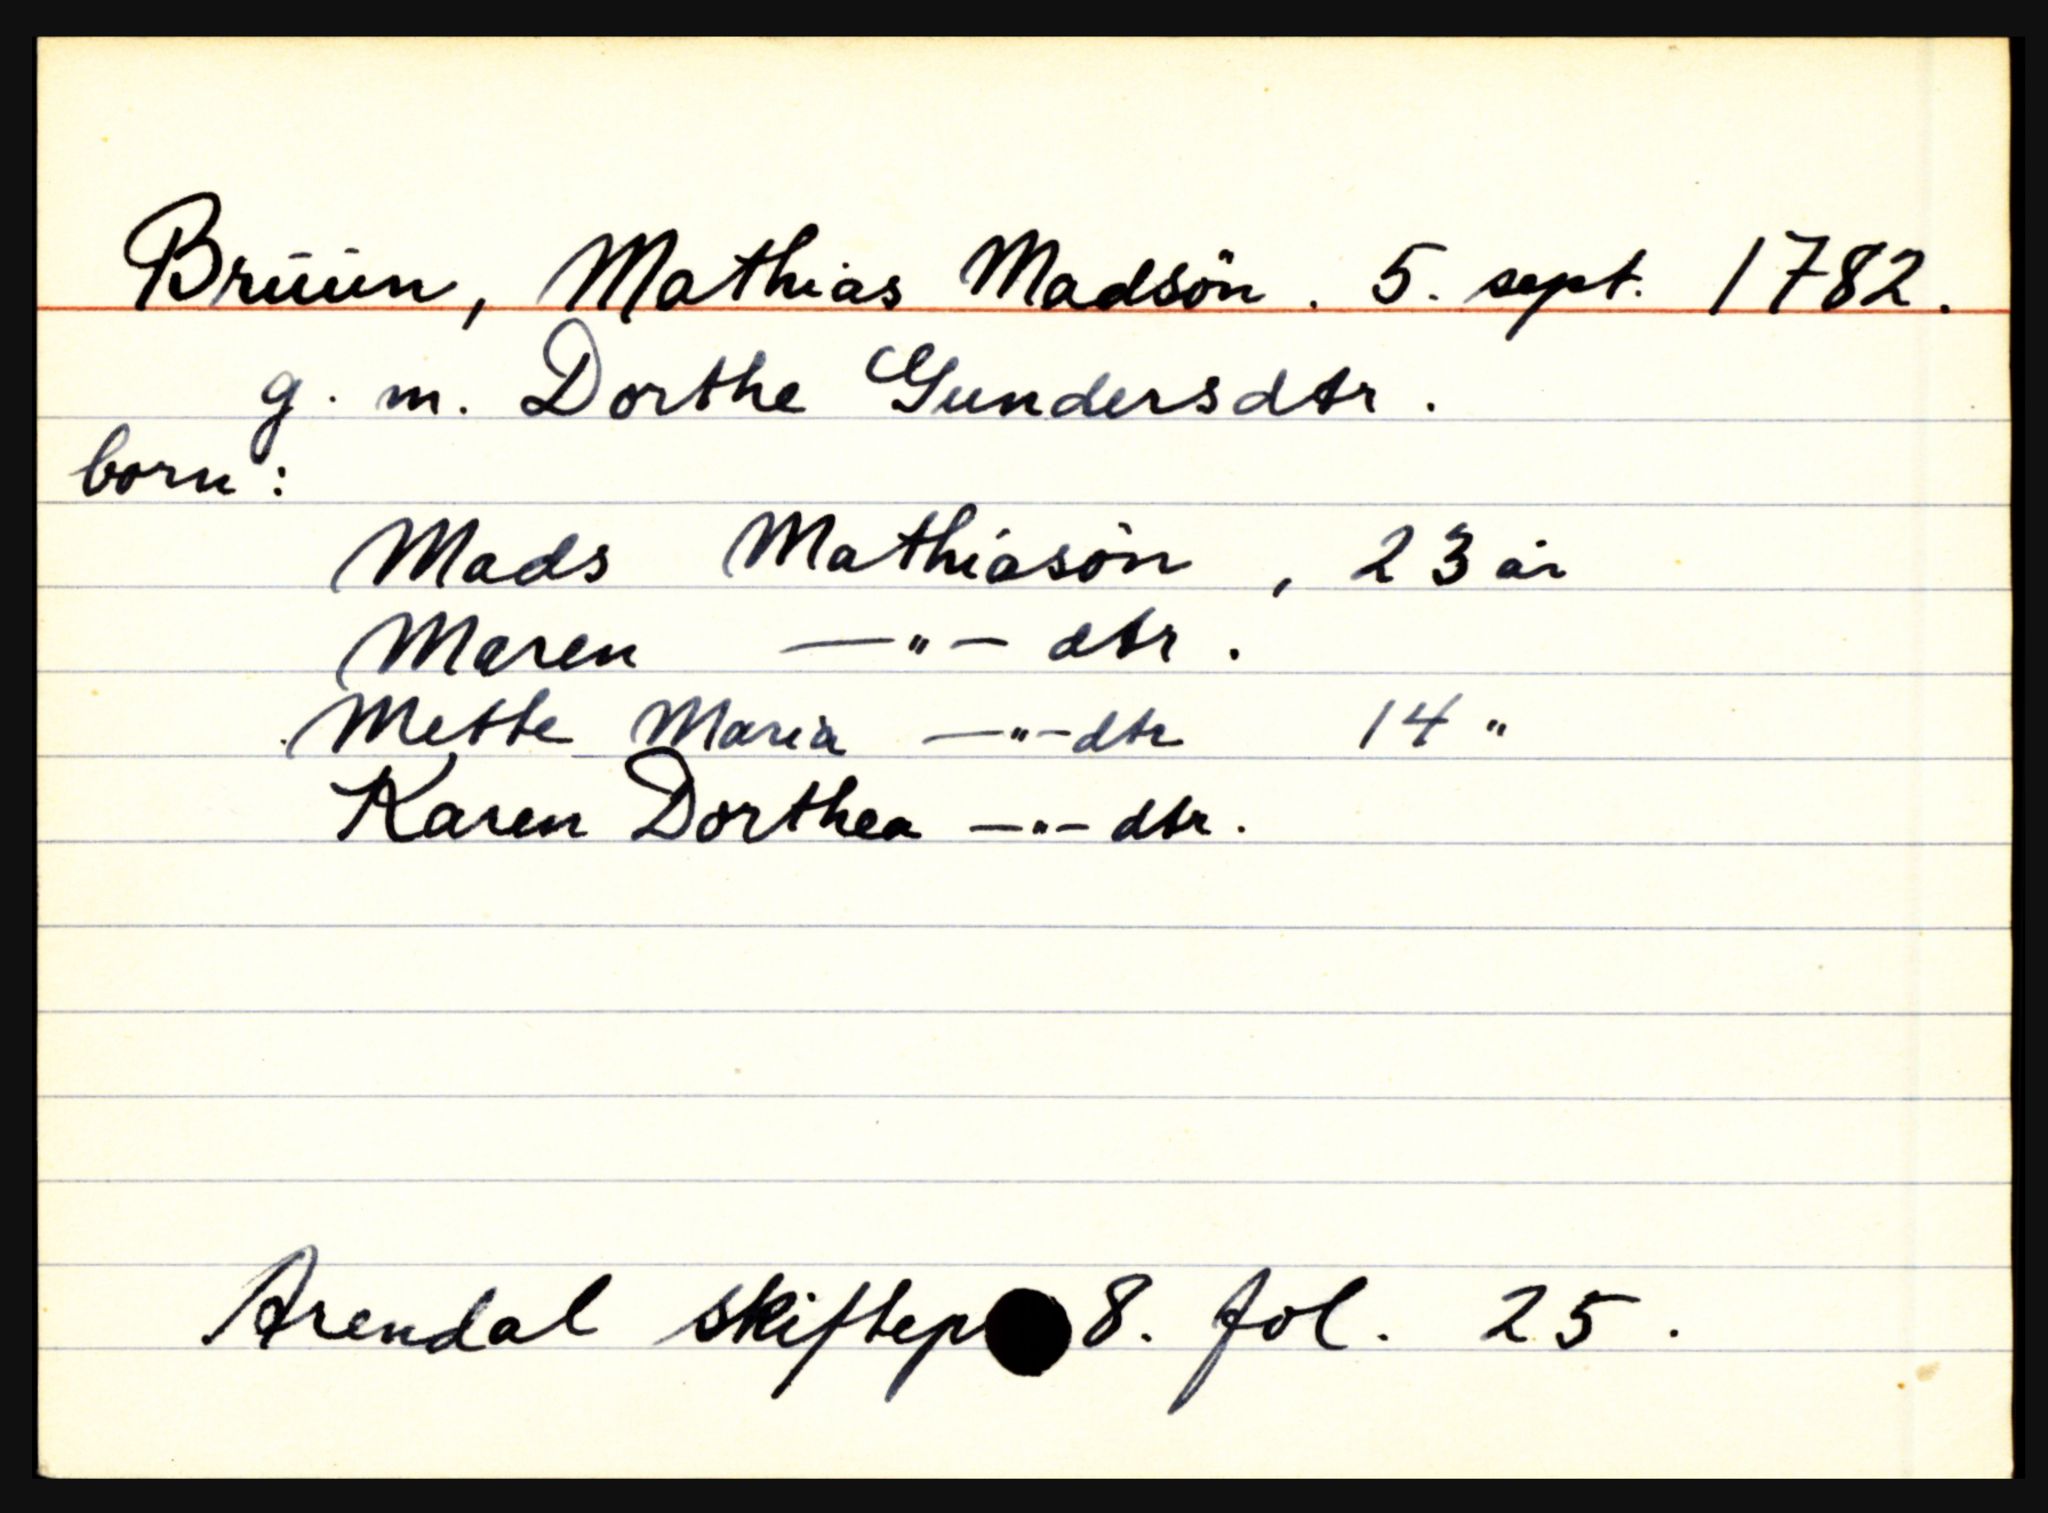 Brūūn, Mathias Madsön. 5. sept. 1782.
g. m. Dorthe Gundersdtr.
born:
Mads Mathiasön, 23 år
Maren —"— dtr.
Mette Maria —"— dtr 14 "
Karen Dorthea —"— dtr.
Arendal skiftep 8. fol. 25.